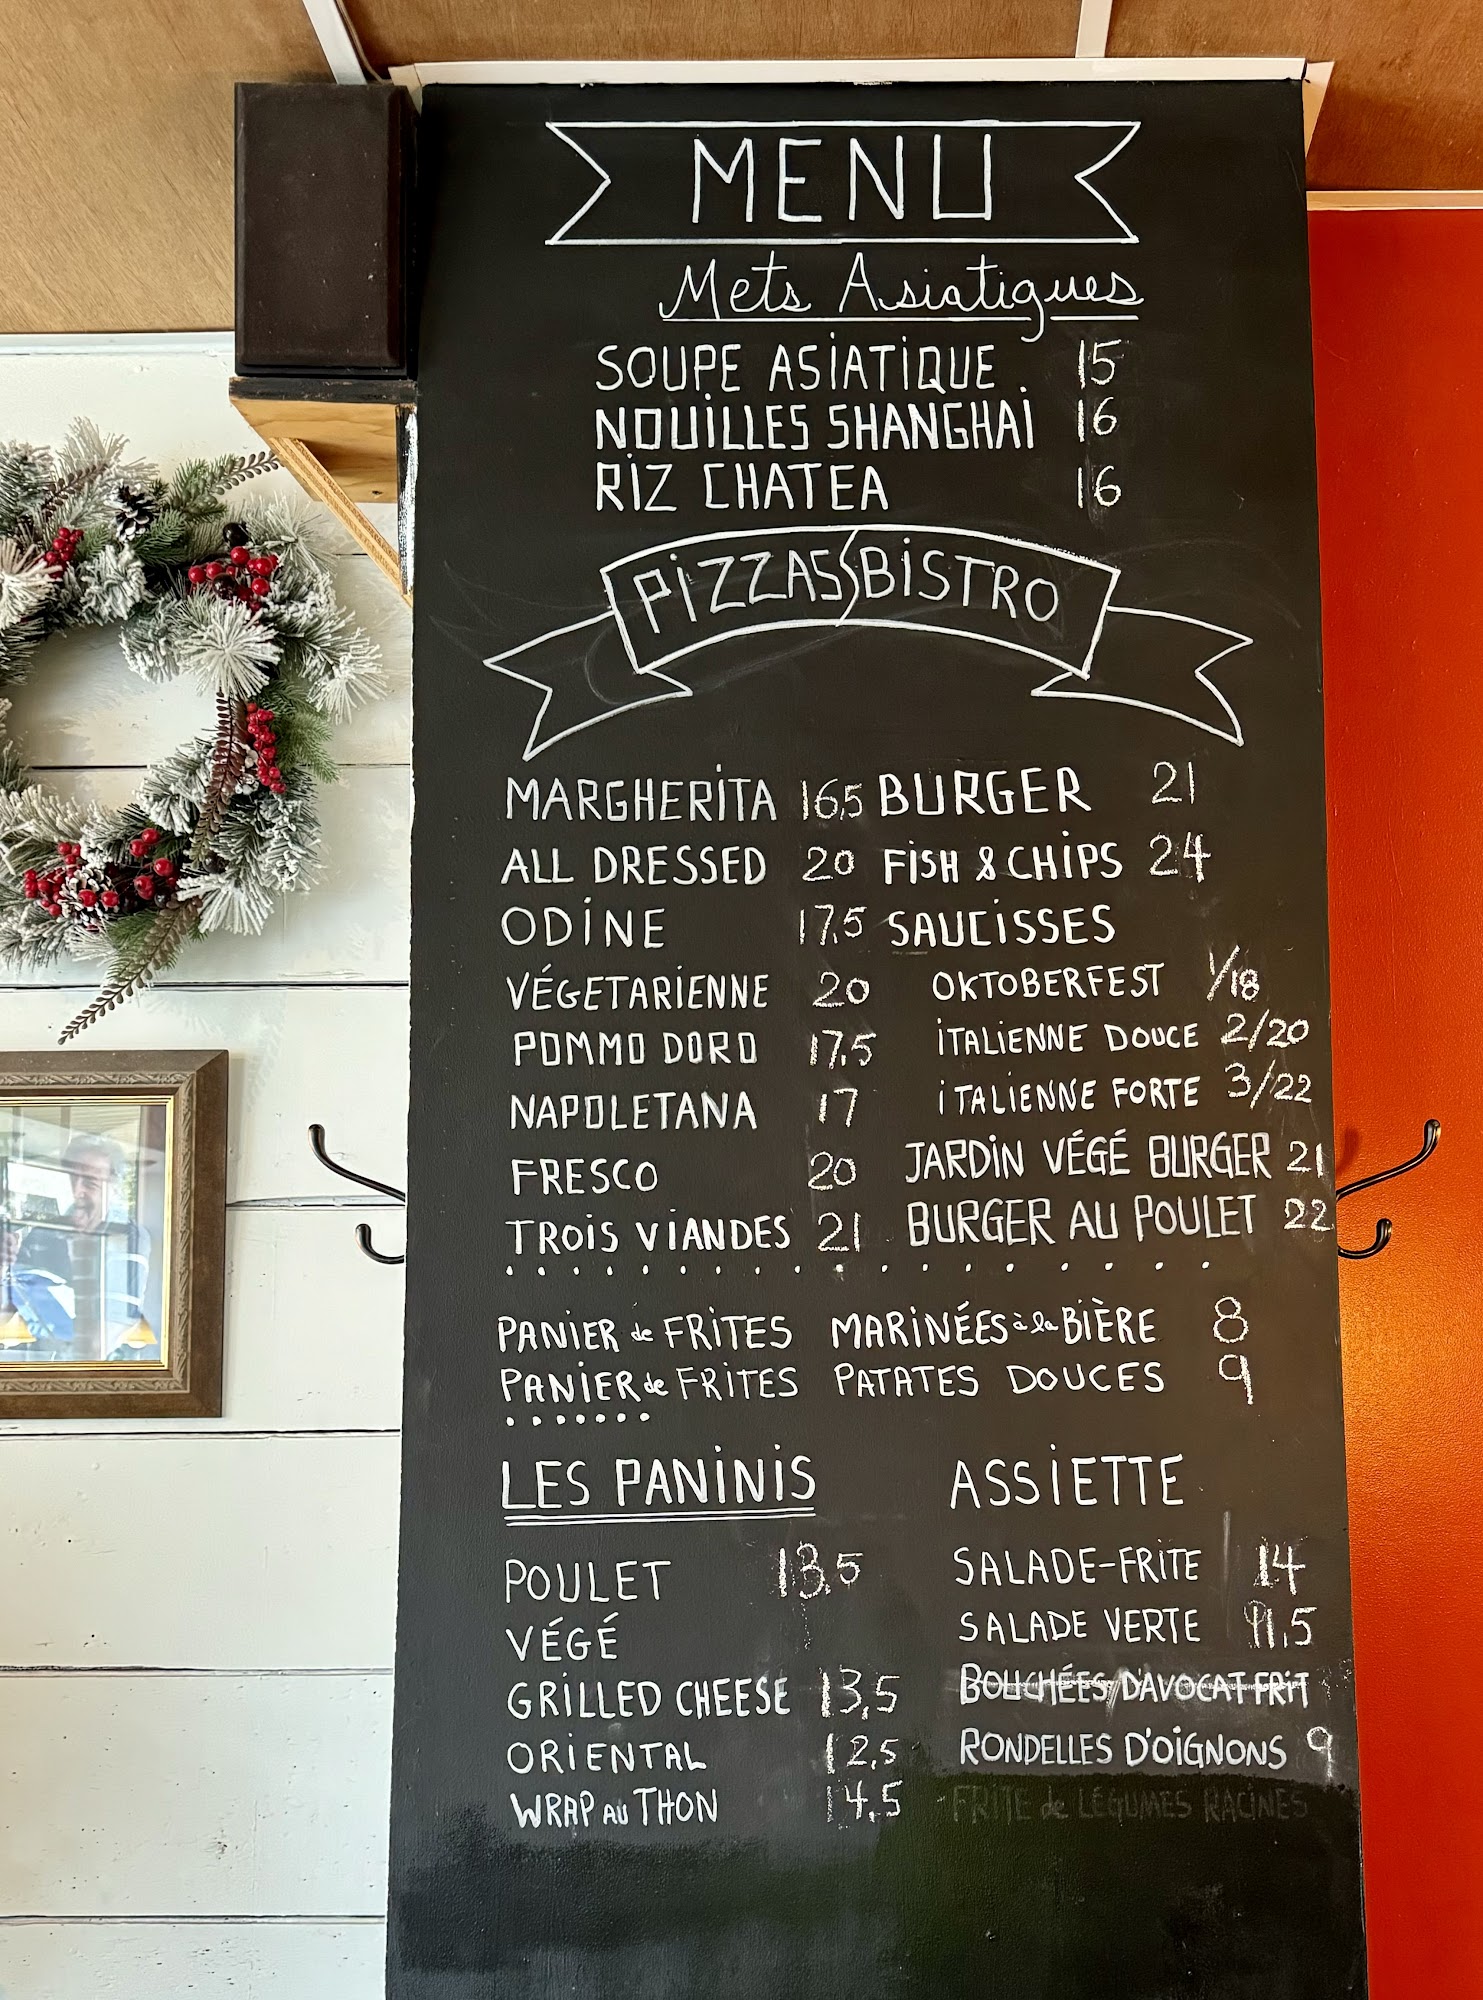 MENU
Mets Asiatiques
SOUPE ASIATIQUE 15
NOUILLES SHANGHAI 16
RIZ CHATEA 16
PIZZAS BISTRO
MARGHERITA 16,5
ALL DRESSED 20
ODINE 17,5
VÉGETARIENNE 20
POMMO DORO 17,5
NAPOLETANA 17
FRESCO 20
TROIS VIANDES 21
BURGER 21
FISH & CHIPS 24
SAUCISSES
OKTOBERFEST 1/18
ITALIENNE DOUCE 2/20
ITALIENNE FORTE 3/22
JARDIN VÉGÉ BURGER 21
BURGER AU POULET 22
PANIER de FRITES MARINÉES à la BIÈRE 8
PANIER de FRITES PATATES DOUCES 9
LES PANINIS
POULET 13,5
VÉGÉ
GRILLED CHEESE 13,5
ORIENTAL 12,5
WRAP AU THON 14,5
ASSIETTE
SALADE-FRITE 14
SALADE VERTE 11,5
BOUCHÉES D'AVOCAT FRIT
RONDELLES D'OIGNONS 9
FRITE de LÉGUMES RACINES